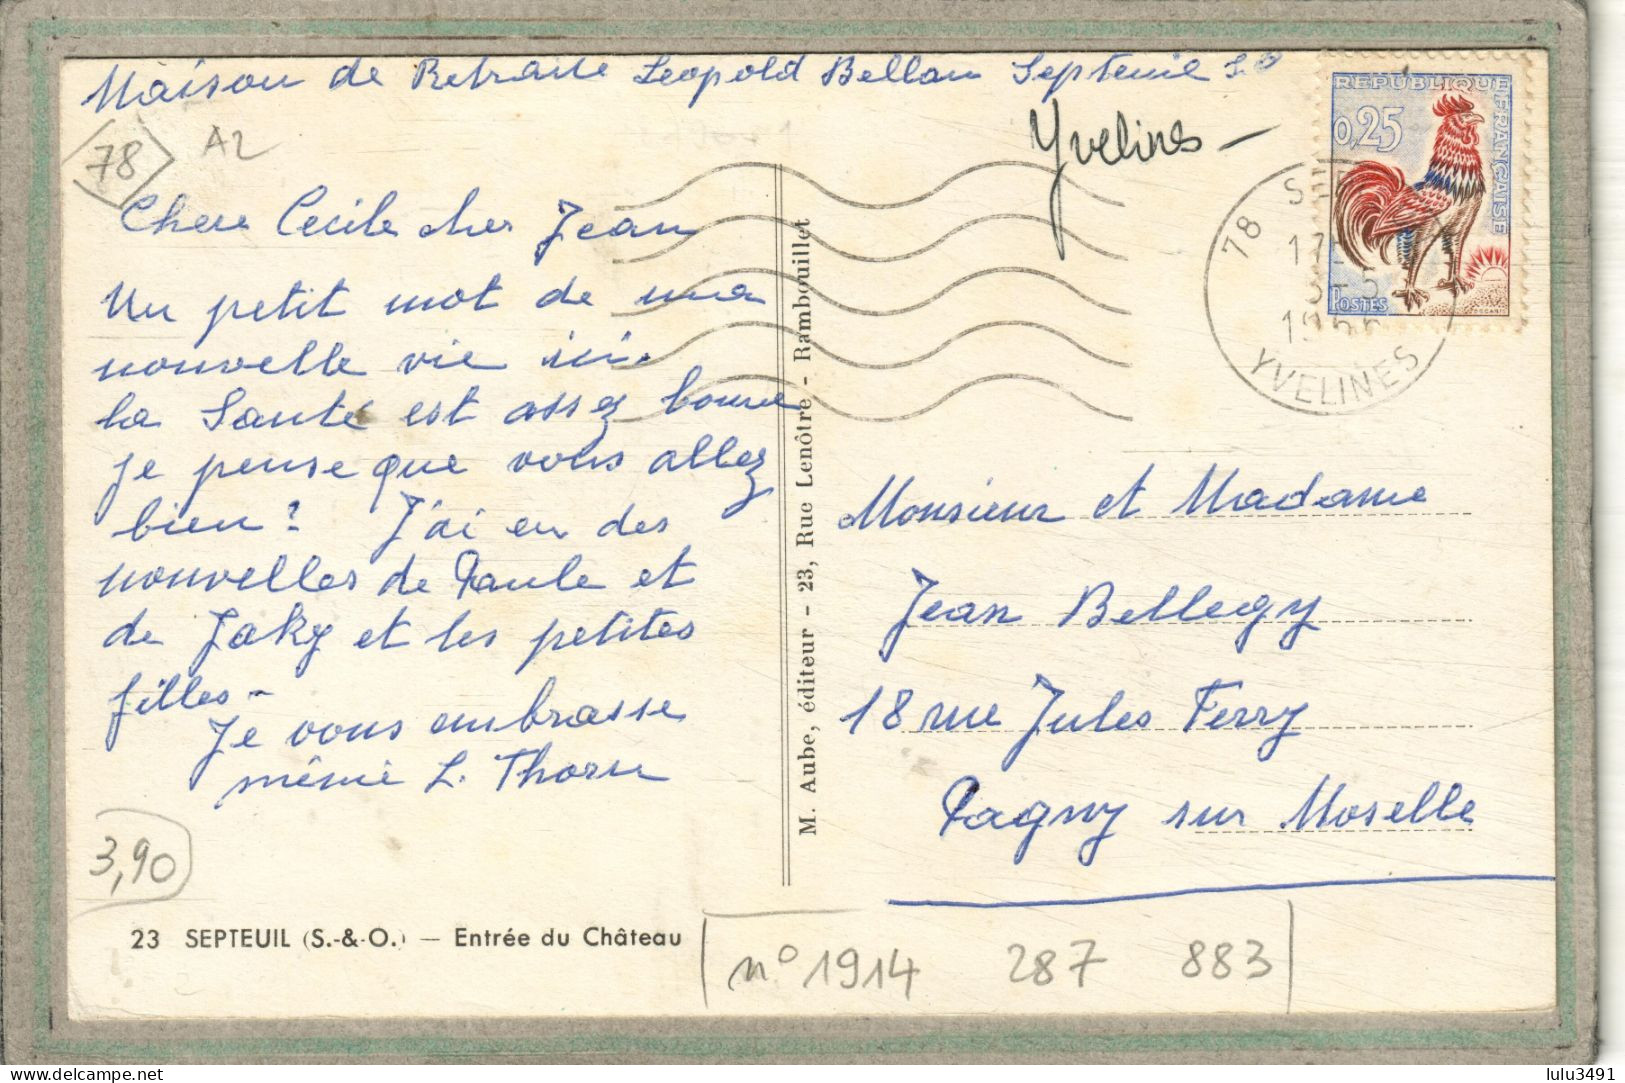 Maison de Retraite Leopold Bellan Septeuil S.O
Yvelines -
78
A2
REPUBLIQUE FRANÇAISE
0,25
POSTES
78
YVELINES
Chere Cecile cher Jean
Un petit mot de ma
nouvelle vie ici.
la Santé est assez bonne
je pense que vous allez
bien ? J'ai eu des
nouvelles de Paule et
de Jaky et les petites
filles -
Je vous embrasse
mémé L. Thorn
M. Aube, éditeur - 23, Rue Lenôtre - Rambouillet
Monsieur et Madame
Jean Bellegy
18 rue Jules Ferry
Pagny sur Moselle
3,90
23 SEPTEUIL (S.-&-O.) — Entrée du Château
n° 1914 287 883
delcampe.net
lulu3491